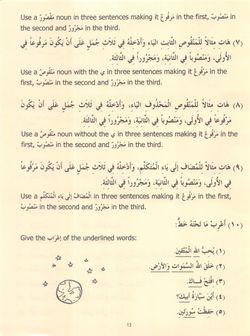 Use a مَقْصُورٌ noun in three sentences making it مَرْفُوعٌ in the first, مَنْصُوبٌ in
the second and مَجْرُورٌ in the third.
(٧) هَاتِ مِثَالاً لِلْمَنْقُوصِ الثَّابِتِ الْيَاءِ، وَأَدْخِلْهُ فِي ثَلَاثِ جُمَلٍ عَلَى أَنْ يَكُونَ مَرْفُوعاً فِي
الأُولَى، وَمَنْصُوباً فِي الثَّانِيَةِ، وَمَجْرُوراً فِي الثَّالِثَةِ.
Use a مَنْقُوصٌ noun with the ي in three sentences making it مَرْفُوعٌ in the first,
مَنْصُوبٌ in the second and مَجْرُورٌ in the third.
(٨) هَاتِ مِثَالاً لِلْمَنْقُوصِ الْمَحْذُوفِ الْيَاءِ، وَأَدْخِلْهُ فِي ثَلَاثِ جُمَلٍ عَلَى أَنْ يَكُونَ مَرْفُوعاً
فِي الأُولَى، وَمَنْصُوباً فِي الثَّانِيَةِ، وَمَجْرُوراً فِي الثَّالِثَةِ.
Use a مَنْقُوصٌ noun without the ي in three sentences making it مَرْفُوعٌ in the
first, مَنْصُوبٌ in the second and مَجْرُورٌ in the third.
(٩) هَاتِ مِثَالاً لِلْمُضَافِ إِلَى يَاءِ الْمُتَكَلِّمِ، وَأَدْخِلْهُ فِي ثَلَاثِ جُمَلٍ عَلَى أَنْ يَكُونَ مَرْفُوعاً
فِي الأُولَى، وَمَنْصُوباً فِي الثَّانِيَةِ، وَمَجْرُوراً فِي الثَّالِثَةِ.
Use a الْمُضَافُ إِلَى يَاءِ الْمُتَكَلِّمِ in three sentences making it مَرْفُوعٌ in the first,
مَنْصُوبٌ in the second and مَجْرُورٌ in the third.
(١٠) أَعْرِبْ مَا تَحْتَهُ خَطٌّ:
Give the إِعْرَابٌ of the underlined words:
(١) يُحِبُّ اللهُ الْمُتَّقِينَ.
(٢) خَلَقَ اللهُ السَّمَوَاتِ وَالأَرْضَ.
(٣) افْتَحْ فَاكَ.
(٤) أَيْنَ سَيَّارَةُ أَبِيكَ؟
(٥) حَفِظْتُ سُورَتَيْنِ.
13